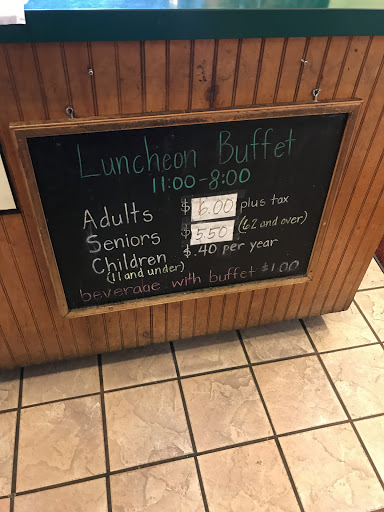 Luncheon Buffet
11:00-8:00
Adults $6.00 plus tax
Seniors $5.50 (62 and over)
Children $.40 per year
(11 and under)
beverage with buffet $1.00